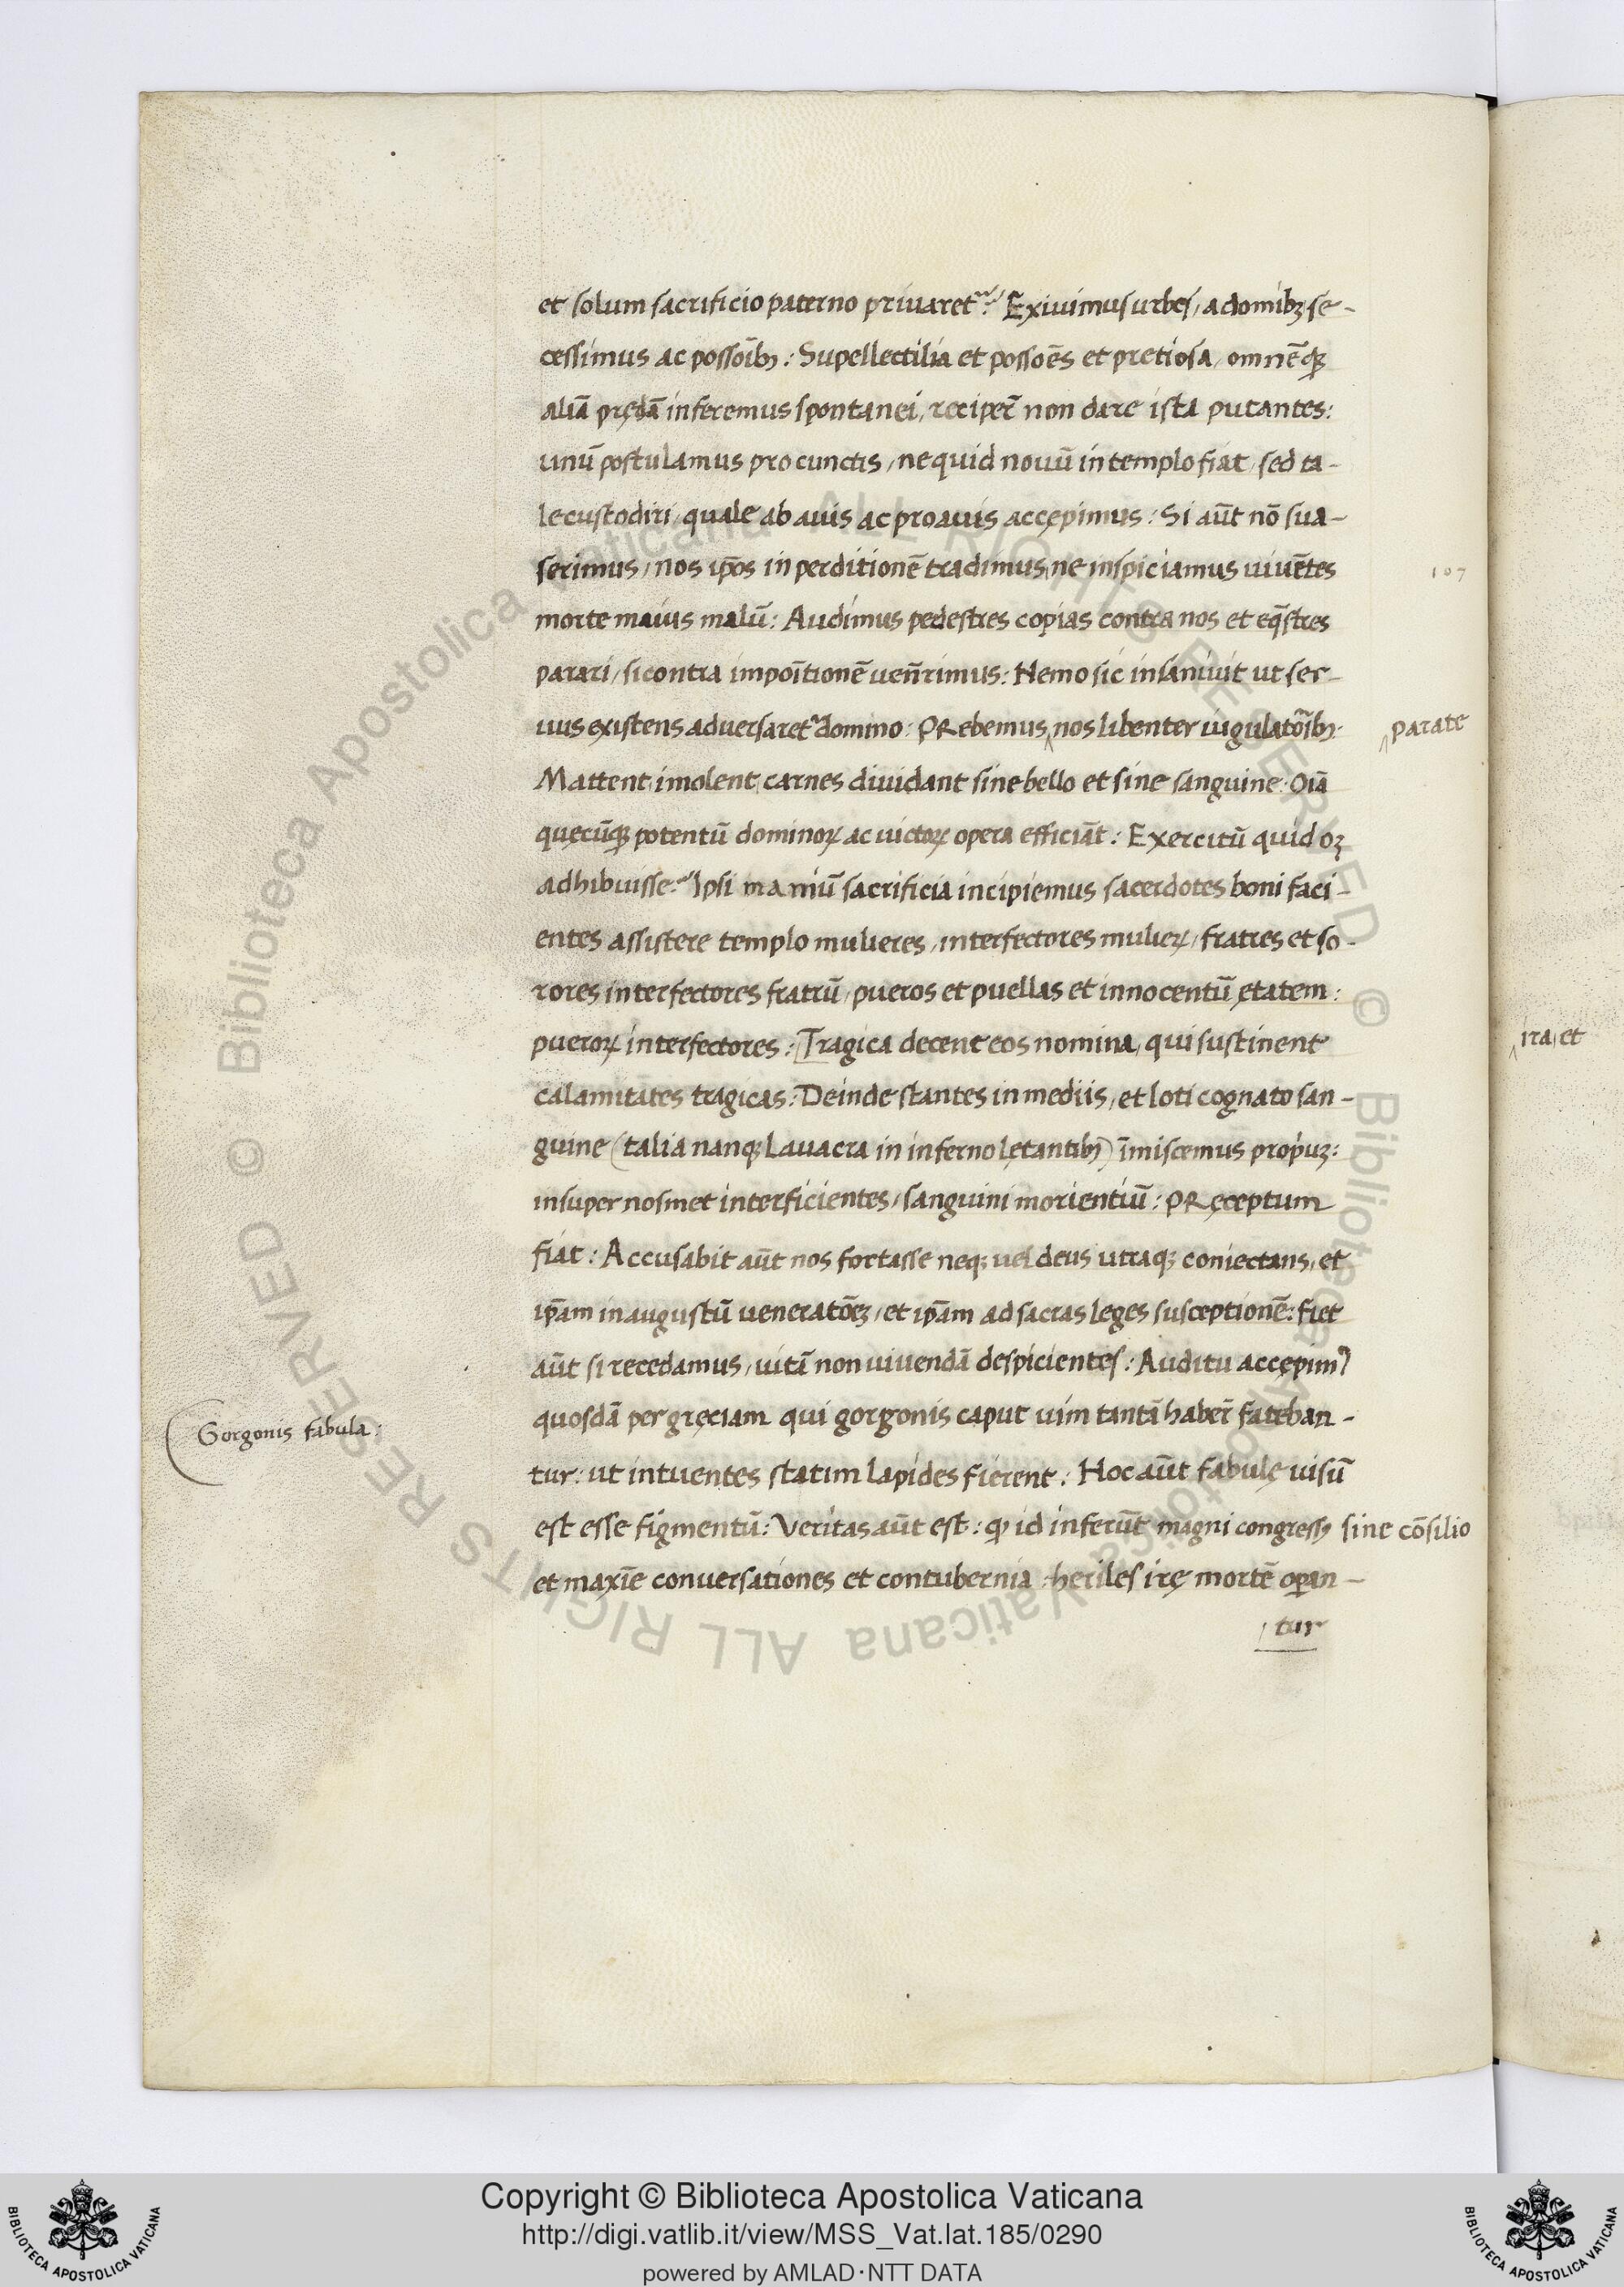 et solum sacrificio paterno privaret᷑: Exivimus urbes, a domibꝫ se-
cessimus ac possoı̄bꝫ: Supellectilia et possoēs et pretiosa, omnēqꝫ
aliā prędā inferemus spontanei, reciper̄ non dare ista putantes:
unū postulamus pro cunctis, ne quid novū in templo fiat, sed ta-
le custodiri, quale ab avis ac proavis accępimus: Si aūt nō sua-
serimus, nos ip̄os in perditionē tradimus, ne inspiciamus vivētes
107
morte maius malū: Audimus pedestres copias contra nos et eq̄stres
parari, si contra impoı̄tionē ven̄rimus: Nemo sic insanivit ut ser-
vus existens adversaret᷑ domino: PRebemus ‸nos libenter iugulatōıbꝫ.
‸parate
Mattent, imolent, carnes dividant sine bello et sine sanguine: Oı̄a
quęcūqꝫ potentū dominoꝝ ac victoꝝ opera efficiāt: Exercitū quid oꝫ
adhibuisse: Ipsi manıū sacrificia incipiemus sacerdotes boni faci-
entes assistere templo mulieres, interfectores mulieꝝ, fratres et so-
rores interfectores fratrū, pueros et puellas et innocentū ętatem:
pueroꝝ interfectores: Tragica decent eos nomina, qui sustinent
ıra, et
calamitates tragicas: Deinde stantes in mediis, et loti cognato san-
guine (talia nanqꝫ lavacra in inferno lętantibꝫ) īmiscemus propıuꝫ:
insuper nosmet interficientes, sanguini morientiū: PRęceptum
fiat: Accusabit aūt nos fortasse neqꝫ vel deus utraqꝫ coniectans, et
ip̄am in augustū veneratōꝫ, et ip̄am ad sacras leges susceptionē: fiet
aūt si recedamus, vitā non vivendā despicientes: Auditu accępimꝰ
quosdā per gręciam qui gorgonis caput vim tantā haber̄ fateban-
Gorgonis fabula:
tur: ut intuentes statim lapides fierent: Hoc aūt fabulę visū
est esse figmentū: Veritas aūt est: ꝙ id inferūt magni congressꝰ sine cōsilio
et maxīe conversationes et contubernia: heriles irę mortē oꝑan-
tur
Copyright © Biblioteca Apostolica Vaticana
http://digi.vatlib.it/view/MSS_Vat.lat.185/0290
powered by AMLAD·NTT DATA
BIBLIOTECA APOSTOLICA VATICANA
BIBLIOTECA APOSTOLICA VATICANA
© Biblioteca Apostolica Vaticana ALL RIGHTS RESERVED
© Biblioteca Apostolica Vaticana ALL RIGHTS RESERVED